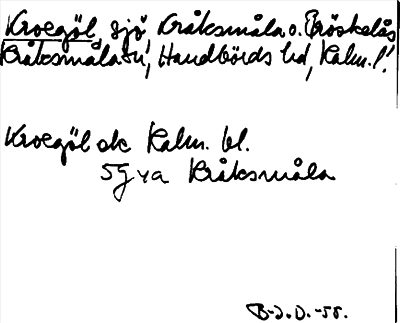 Kroegöl, sjö Kråksmåla o. Bröskelås
Kråksmåla sn, Handbörds hd, Kalm. l.
Kroegöl ek Kalm. bl.
5g va Kråksmåla
B-J.D. -55.